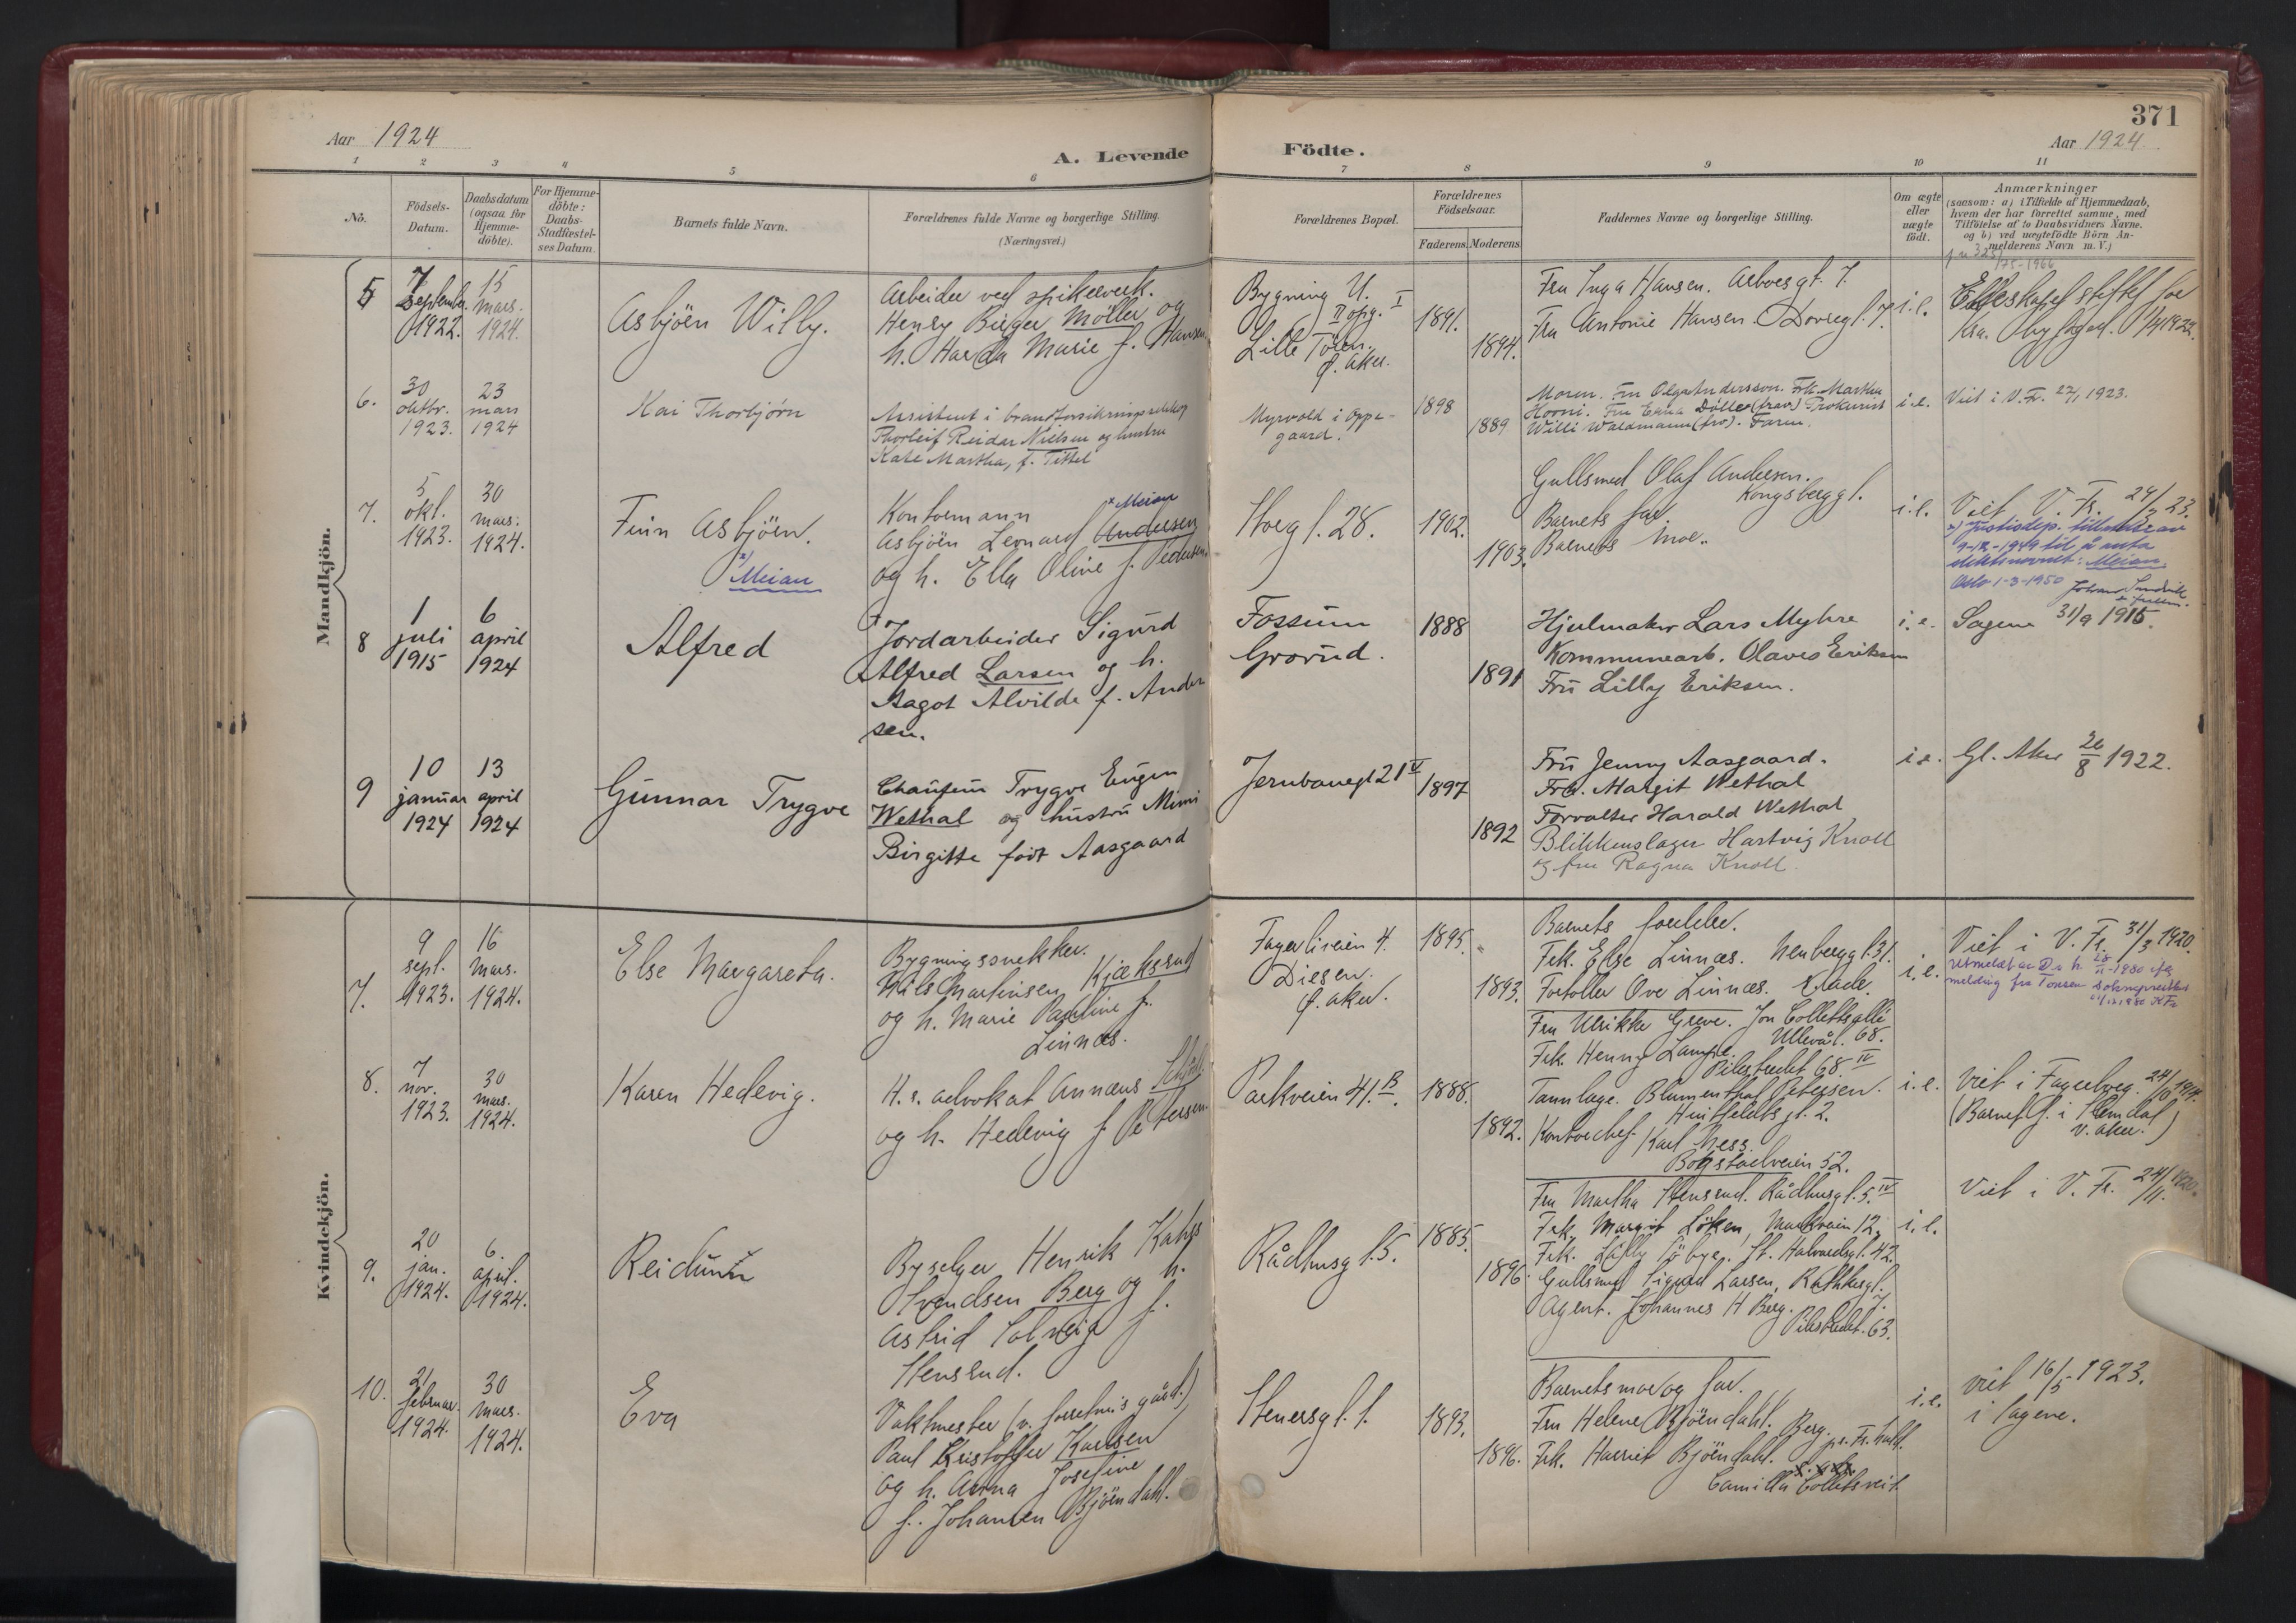 371
Aar 1924
A. Levende
Födte.
Aar 1924
1 2 3 4 5 6 7 8 9 10 11
No.
Födsels-
Datum.
Daabsdatum
(ogsaa for
Hjemme-
döbte).
For Hjemme-
döbte:
Daabs-
Stadfæstel-
ses Datum.
Barnets fulde Navn.
Forældrenes fulde Navne og borgerlige Stilling.
(Næringsvei.)
Forældrenes Bopæl.
Forældrenes
Födselsaar.
Faderens. Moderens.
Faddernes Navne og borgerlige Stilling.
Om ægte
eller
uægte
födt.
Anmærkninger
(saasom: a) i Tilfælde af Hjemmedaab,
hvem der har forrettet samme, med
Tilföielse af to Daabsvidners Navne.
og b) ved uægtefödte Börn An-
melderens Navn m. V.)
Mandkjön.
5
7
September
1922.
15
mars.
1924.
Asbjöen Willy.
Arbeider ved spikerverk.
Henry Birger Møller og
h. Harda Marie f. Hansen
Bygning U.
II opg. I
Lille Töien.
Ø. Aker.
1891.
1894.
Fru Inga Hansen. Arboesgt. 7.
Fru Antonie Hansen. Dovregt. 7.
i.e.
Ekteskapet stiftet for
Kra. byfoged. 1/4 1922.
6.
30
oktbr.
1923.
23
mars
1924
Kai Thorbjørn
Assistent i brandforsikringsselskap
Thorleif Reidar Nielsen og hustru
Kate Martha, f. Tittel
Myrvold i Oppe-
gaard.
1898
1889
Moren. Fru Olga Andersson. Frk. Martha
Horni. Fru Edna Döller (frav) Prokurist
Willi Waldmann (frv). Faren.
i.e.
Viet i V. Fr. 27/1 1923.
7.
5
okt.
1923.
30
mars.
1924.
Finn Asbjöen.
x) Meian
Kontormann x Meian
Asbjöen Leonard Andersen
og h. Ella Oline f. Pedersen.
Storgt. 28.
1902.
1903.
Gullsmed Olaf Andersen.
Kongsberggt.
Barnets far.
Barnets mor.
i.e.
Viet V. Fr. 24/3 23.
x) Justisdep. tillatelse av
9-12-1949 til å anta
slektsnavnet: Meian
Oslo 1-3-1950
8
1
juli
1915
6
april
1924
Alfred
Jordarbeider Sigurd
Alfred Larsen og h.
Aagot Alvilde f. Ander
sen.
Fossum
Grorud.
1888
1891
Hjulmaker Lars Myhre
Kommunearb. Olaves Eriksen
Fru Lilly Eriksen.
i.e.
Sagene 31/9 1915.
9
10
januar
1924
13
april
1924
Gunnar Trygve
Chauffeur Trygve Eugen
Wethal og hustru Mimi
Birgitte født Aasgaard
Jernbanegt 21 V
1897
1892
Fru Jenny Aasgaard.
Frk. Margit Wethal
Forvalter Harald Wethal
Blikkenslager Hartvig Knoll
og fru Ragna Knoll.
i.e.
Gl. Aker 26/8 1922.
Kvindekjön.
7.
9
sept.
1923.
16
mars.
1924.
Else Margareta.
Bygningssnekker.
Nils Martinsen Kjæksrud
og h. Marie Pauline f.
Linnæs.
Fagerliveien 4.
Disen.
Ø. Aker.
1895.
1893.
Barnets foreldre.
Frk. Else Linnæs. Neuberggt. 31.
Fortoller Ove Linnæs.
i.e.
Viet i V. Fr. 31/3 1920.
8.
7
nov.
1923.
30
mars.
1924.
Karen Hedevig.
H. r. advokat Annæus
og h. Hedevig f. Petersen
Parkveien 41. B.
1888.
1892.
Fru Ulrikke Greve. Jon Collettsallé
Ullevål. 68.
Frk. Henny Lampe.
Pilestredet 68 IV
Tannlæge. Blumenthal Petersen.
Huitfeldts gt. 2.
Kontorchef Karl Ness.
Bogstadveien 52.
i.e.
Viet i Fagerborg. 24/10 1914.
(Barnet f. i Slemdal
V. Aker.)
9.
20
jan.
1924.
6.
april.
1924.
Reidunn
Byselger Henrik Kahrs
Svendsen Berg og h.
Astrid Solveig f.
Stensrud.
Rådhusgt. 5.
1885.
1896.
Fru Martha Stensrud. Rådhusgt. 5. IV
Frk. Margit Löken, Markveien 12,
Frk. Lilly Nybye. St. Halvardsgt. 42.
Gullsmed Sigurd Larsen, Rathkesgt.
7.
Agent. Johannes H Berg.
Pilestredet. 63.
i.e.
Viet i V. Fr. 24/11. 1920.
10.
21
februar.
1924.
30
mars.
1924.
Eva
Vaktmester (v. forretnis gård.)
Paul Kristoffer Karlsen
og h. Anna Josefine
f. Johansen Bjöendahl.
Stenersgt. 1.
1893.
1896.
Barnets mor og far.
Fru Helene Bjöendahl. Berg.
pr. Fr. hald.
Frk. Harriet Bjöendahl.
Camilla Colletsvei 1.
i.e.
viet 16/5 1923.
i Sagene.